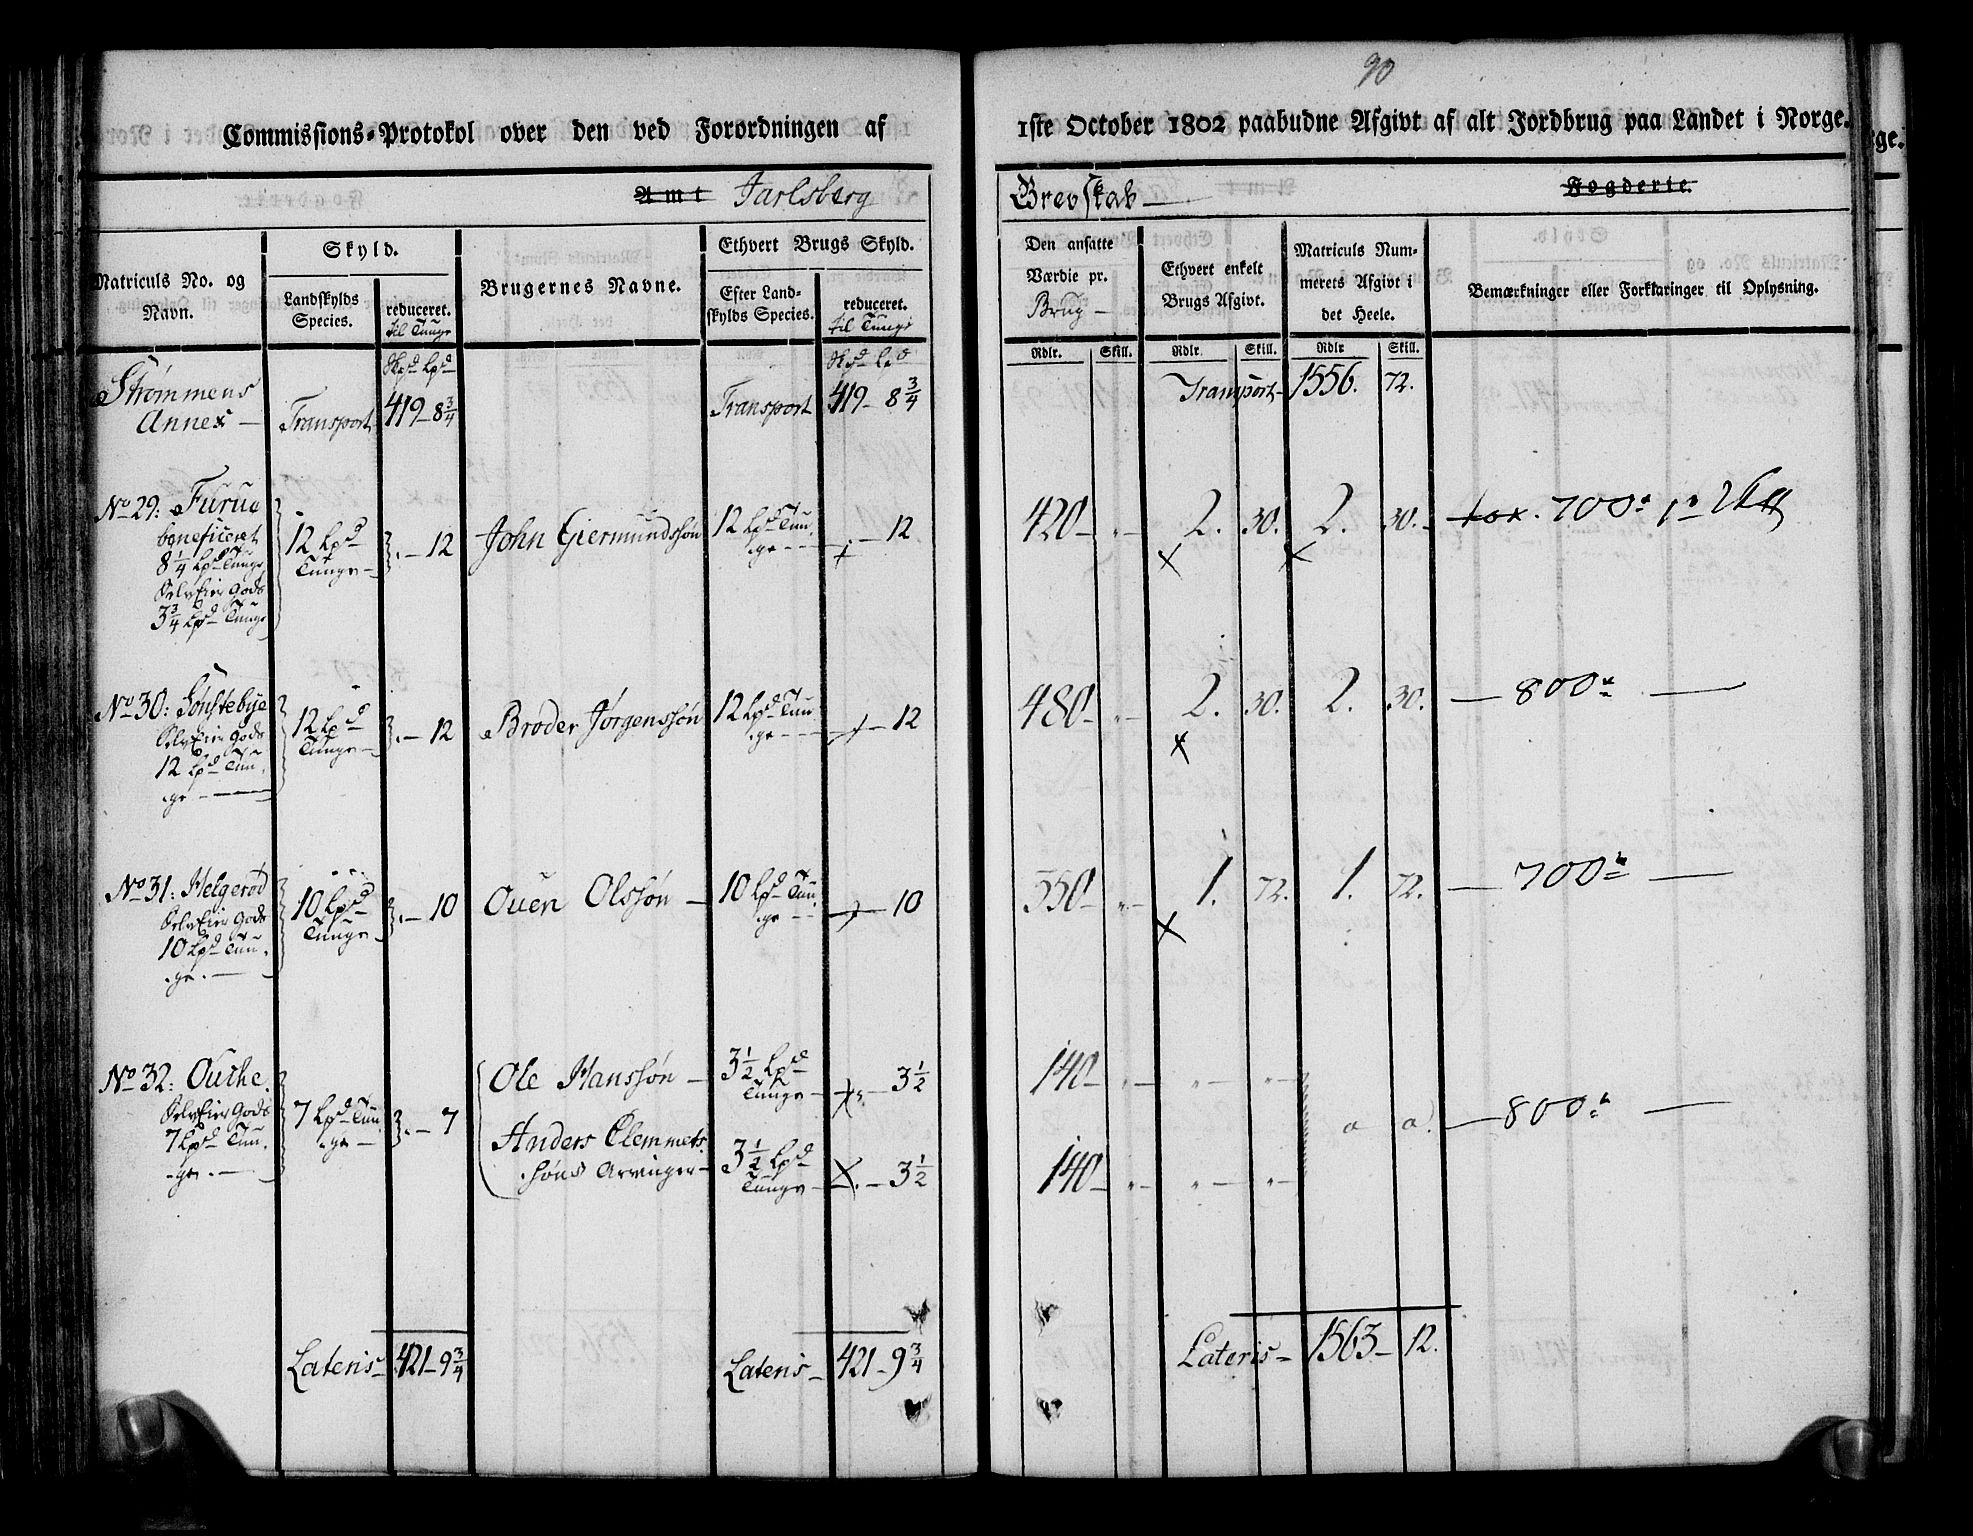 90
Commissions-Protokol over den ved Forordningen af 1ste October 1802 paabudne Afgivt af alt Jordbrug paa Landet i Norge.
Amt Jarlsberg Grevskab — Fogderie.
Matriculs No. og Navn.
Skyld.
Landskylds Species.
reduceret. til Tunge
Brugernes Navne.
Ethvert Brugs Skyld.
Efter Landskylds Species.
reduceret. til Tunge
Den ansatte Værdie pr. Brug —
Ethvert enkelt Brugs Afgivt.
Matriculs Nummerets Afgivt i det Heele.
Bemærkninger eller Forklaringer til Oplysning.
Rdlr. Skill. Rdlr. Skill. Rdlr. Skill.
Strømmens
Annex — Transport 419 – 8 3/4 Transport 419 – 8 3/4 Transport – 1556. 72.
No 29: Furue
beneficeret
8 1/4 Lpd Tunge
SelvEier Gods
3 3/4 Lpd Tunge
12 Lpd
Tunge –
. – 12
John Giermundssøn
12 Lpd Tun
ge – – –
. – 12
420 – 2. 30. 2. 30. 700
No 30: Sønstebye
SelvEier Gods
12 Lpd Tun
ge – —
12 Lpd
Tunge –
. – 12
Broder Jørgenssøn
12 Lpd Tun
ge – – –
– 12
480 – 2. 30. 2. 30. — 800 —
No 31: Helgerød
SelvEier Gods
10 Lpd Tun
ge. —
10 Lpd
Tunge –
. – 10
Ouen Olssøn –
10 Lpd Tun
ge – –
– 10
350 – 1. 72. 1. 72. — 700 —
No 32: Outhe.
SelvEier Gods
7 Lpd Tun
ge. —
7 Lpd Tun
ge –
. – 7
Ole Hanssøn –
3 1/2 Lpd
Tunge –
– 3 1/2
140 –
Anders Clemmets
søns Arvinger –
3 1/2 Lpd
Tunge –
. – 3 1/2
140 –
o o. — 800 —
Lateris – 421 – 9 3/4 Lateris – 421 – 9 3/4 Lateris – 1563 – 12.